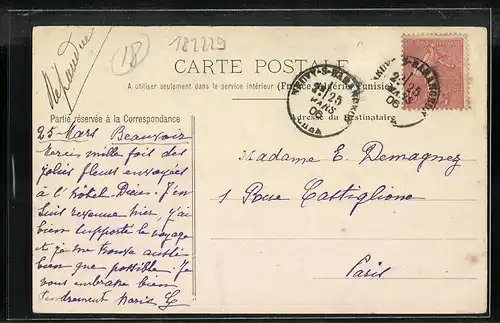 Répondue
(18)
182229
CARTE POSTALE
A utiliser seulement dans le service intérieur (France, Algérie, Tunisie)
Partie réservée à la Correspondance
Adresse du Destinataire
NEUVY-S-BARANGEON
2-1 25
MARS
06
NEUVY-S-BARANGEON
2-1 25
MARS
06
25 Mars Beauvoir
Merci mille fois des
jolies fleurs envoyées
à l'hôtel Dieu. J'en
suis revenue hier, j'ai
bien supporté le voyage
et je me trouve aussi
bien que possible. Je
vous embrasse bien
tendrement Marie
Madame E. Demagnez
1 Rue Castiglione
Paris